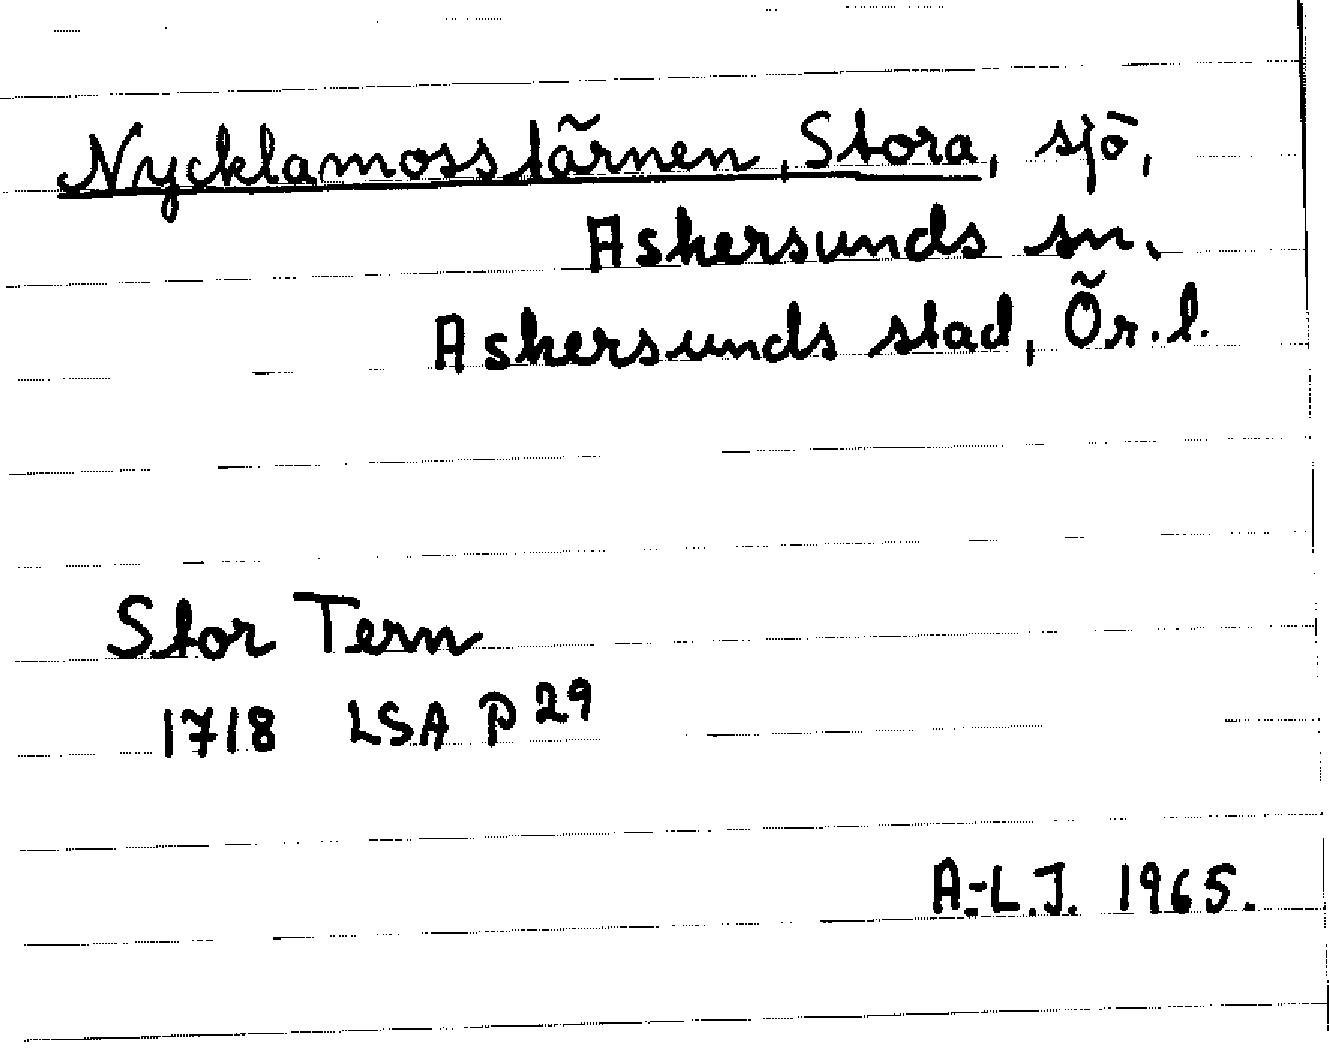 Nycklamosstärnen, Stora, sjö,
Askersunds sn.
Askersunds stad, Ör.l.
Stor Tern
1718 LSA P 29
A.-L.J. 1965.